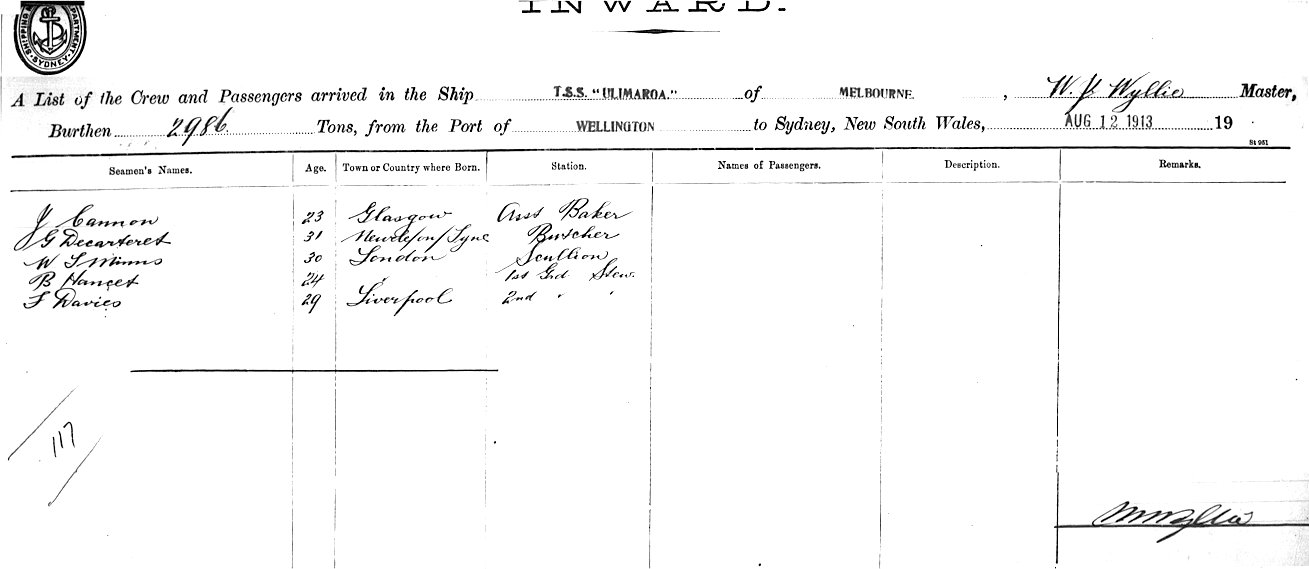 INWARD.
SHIPPING DEPARTMENT. SYDNEY
A List of the Crew and Passengers arrived in the Ship T.S.S. "ULIMAROA." of MELBOURNE, W. J. Wyllie Master,
Burthen 2986 Tons, from the Port of WELLINGTON to Sydney, New South Wales, AUG 12 1913 19
St 951
Seamen's Names. Age. Town or Country where Born. Station. Names of Passengers. Description. Remarks.
J Cannon 23 Glasgow Asst Baker
G Decarteret 31 Newcle/on/Tyne Butcher
W T Mimms 30 London Scullion
B Hancet 24 " 1st Grd Stew.
F Davies 29 Liverpool 2nd " "
117
WJWyllie